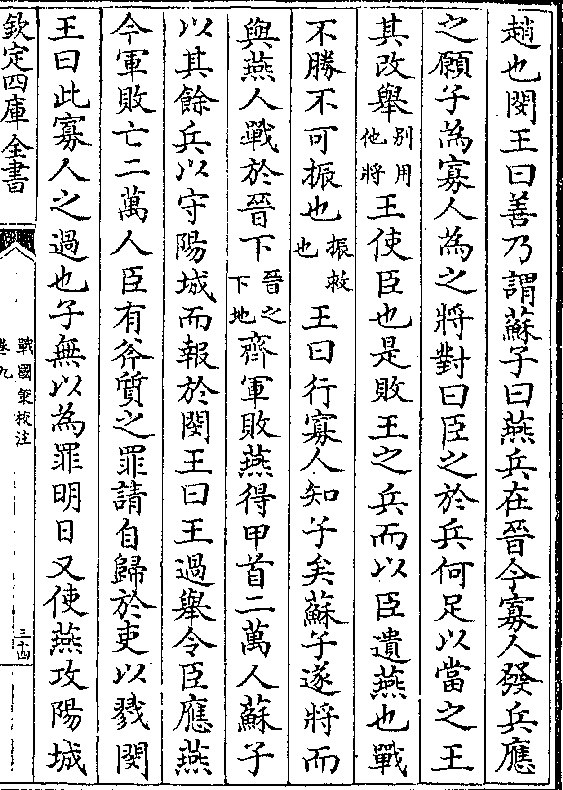 趙也閔王曰善乃謂蘇子曰燕兵在晉今寡人發兵應
之願子為寡人為之將對曰臣之於兵何足以當之王
其改舉别用他將王使臣也是敗王之兵而以臣遺燕也戰
不勝不可振也振救也王曰行寡人知子矣蘇子遂將而
與燕人戰於晉下晉之下地齊軍敗燕得甲首二萬人蘇子
以其餘兵以守陽城而報於閔王曰王過舉令臣應燕
今軍敗亡二萬人臣有斧質之罪請自歸於吏以戮閔
王曰此寡人之過也子無以為罪明日又使燕攻陽城
欽定四庫全書
戰國策校注
卷九
三十四